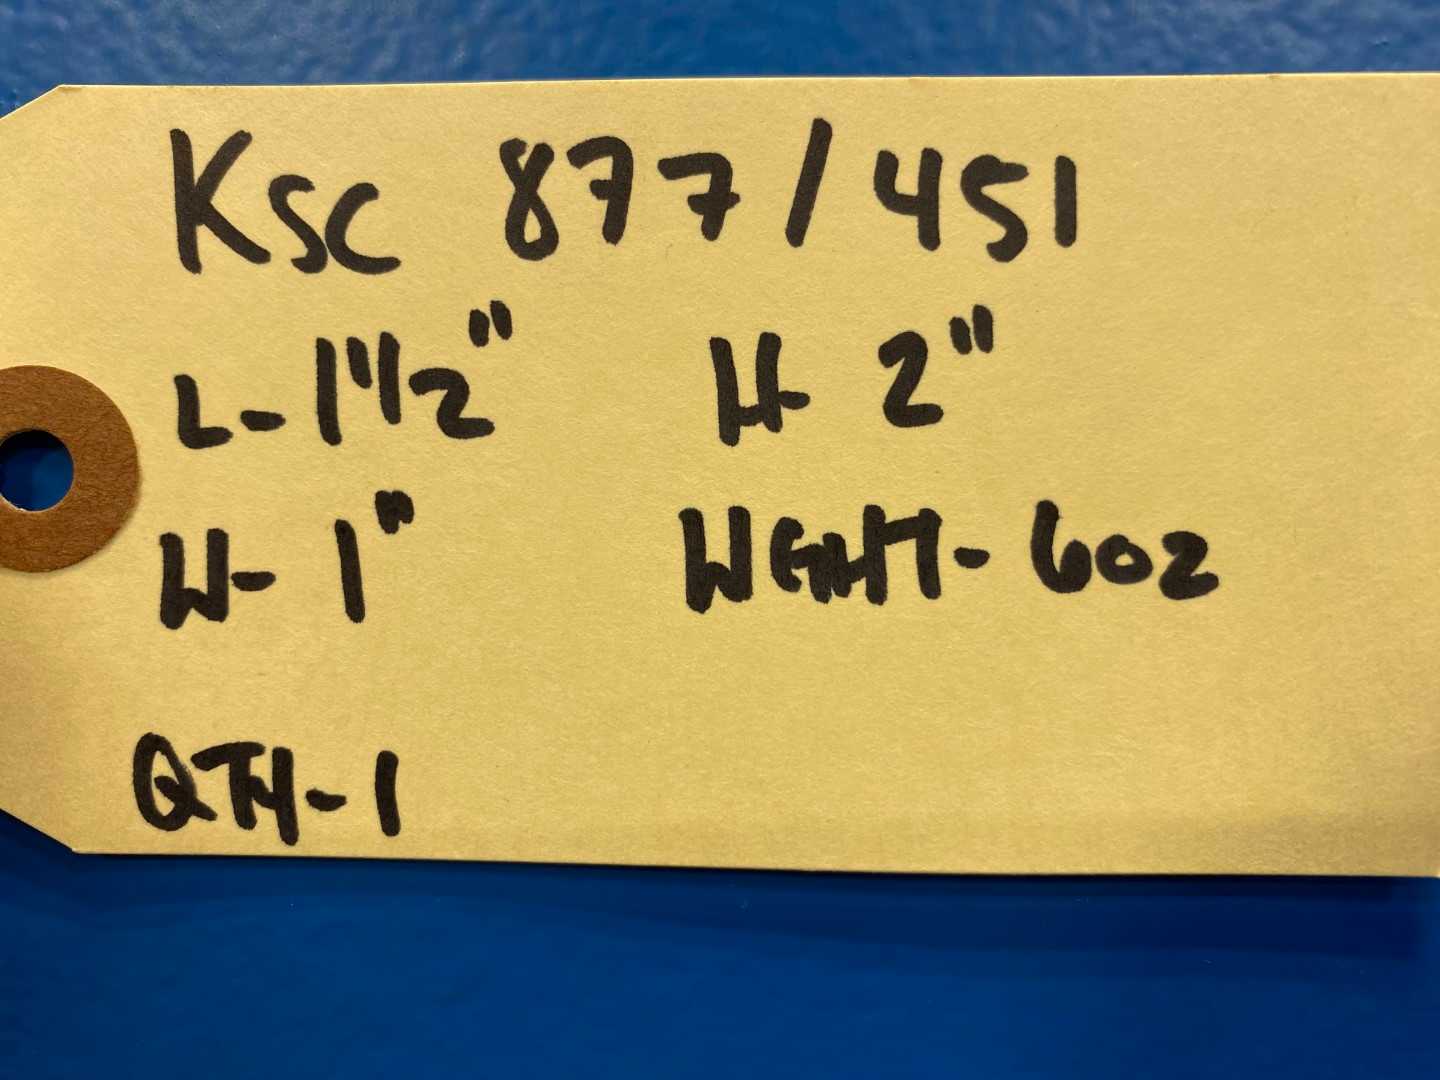 KSC 877/451
L-1 1/2" H- 2"
W- 1" WGHT- 6oz
QTY-1